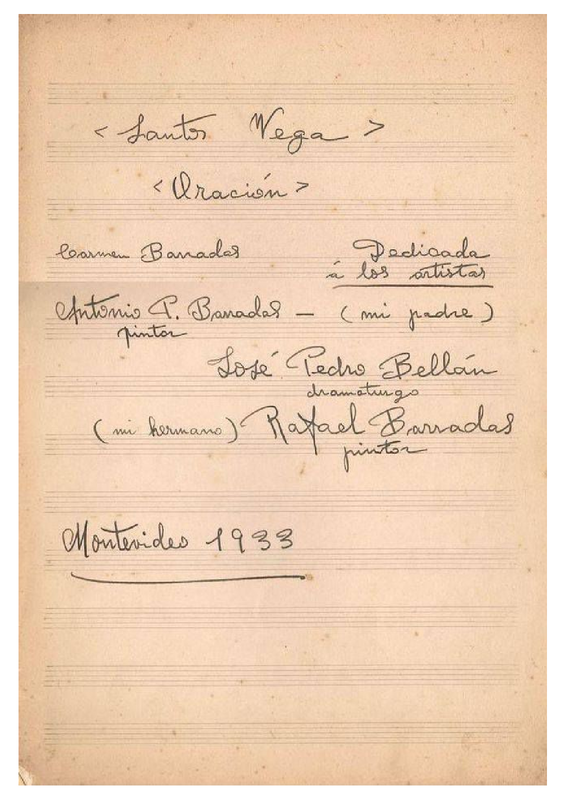 < Santos Vega >
< Oración >
Carmen Barradas Dedicada
á los artistas
Antonio P. Barradas — ( mi padre )
pintor
José Pedro Bellán
dramaturgo
( mi hermano ) Rafael Barradas
pintor
Montevideo 1933